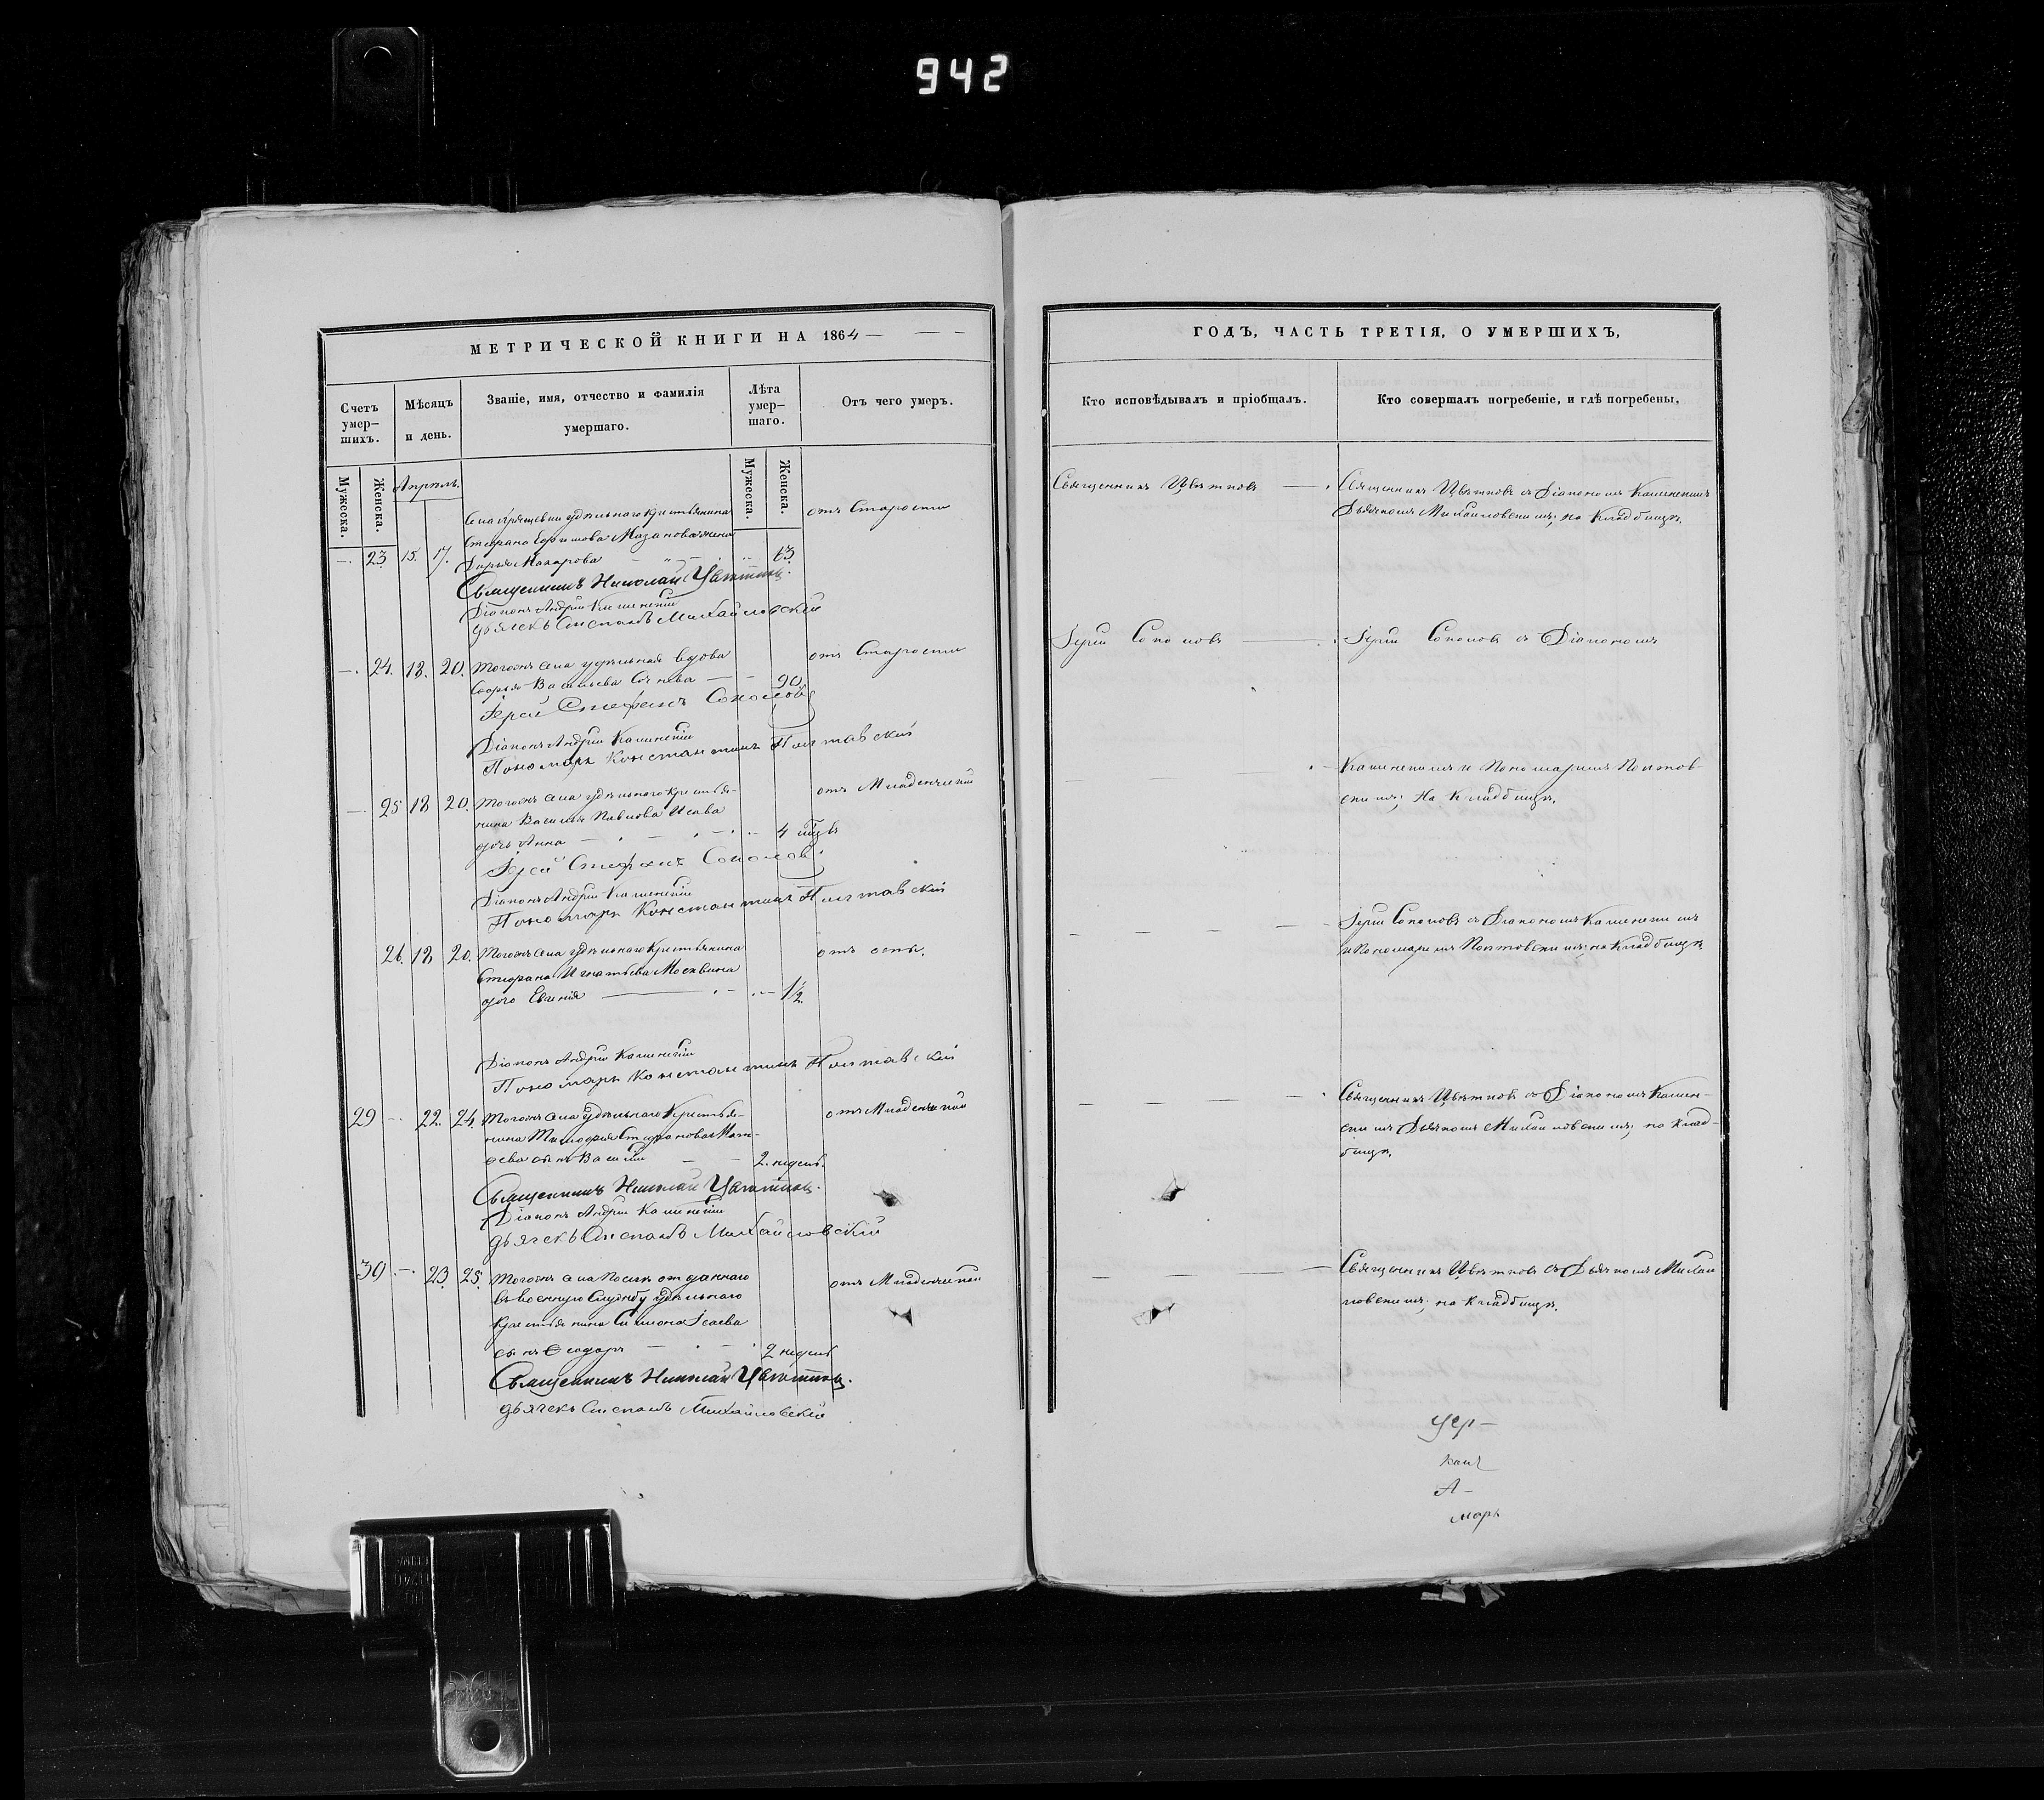 942
МЕТРИЧЕСКОЙ КНИГИ НА 1864
Счетъ умер-шихъ.
Мѣсяцъ и день.
Званіе, имя, отчество и фамилія умершаго.
Лѣта умер-шаго.
Отъ чего умеръ.
Мужеска.
Женска.
Апрѣль.
Мужеска.
Женска.
23. 15. 17.
удѣльнаго крестьянина
жена
Дарья Макарова 63.
отъ старости
Священникъ Николай Цвѣтковъ.
Діаконъ Андрей Каменскій
Дьячекъ Михайловскій
24. 18. 20. Тогожъ села удѣльная вдова
Васильева 90.
отъ старости
Іерей Стефанъ Соколовъ
Діаконъ Андрей Каменскій
Пономарь Константинъ Полтавскій
25 18 20. Тогожъ села удѣльнаго крестья-
нина Василія Павлова Исаева
дочь Анна 4 мѣц.
отъ младенческой
Іерей Стефанъ Соколовъ
Діаконъ Андрей Каменскій
Пономарь Константинъ Полтавскій
26. 18. 20. Тогожъ села удѣльнаго крестьянина
Стефана Игнатьева Москвина
дочь Евгенія 1½.
отъ оспы.
Діаконъ Андрей Каменскій
Пономарь Константинъ Полтавскій
29 22. 24. Тогожъ села удѣльнаго крестья-
нина Тимофея Стефанова
сынъ Василій 2. недѣль.
отъ младенческой
Священникъ Николай Цвѣтковъ.
Діаконъ Андрей Каменскій
Дьячекъ Михайловскій
30 23. 25. Тогожъ села отданнаго
въ военную службу удѣльнаго
крестьянина Симеона Исаева
сынъ Ѳеодоръ 2 недѣль
отъ младенческой
Священникъ Николай Цвѣтковъ.
Дьячекъ Михайловскій
ГОДЪ, ЧАСТЬ ТРЕТІЯ, О УМЕРШИХЪ,
Кто исповѣдывалъ и пріобщалъ.
Кто совершалъ погребеніе, и гдѣ погребены.
Священникъ Цвѣтковъ
Священникъ Цвѣтковъ съ Діакономъ Каменскимъ
Дьячкомъ Михайловскимъ; на кладбищѣ.
Іерей Соколовъ
Іерей Соколовъ съ Діакономъ
Каменскимъ и Пономаремъ Полтав-
скимъ; на кладбищѣ.
Іерей Соколовъ съ Діакономъ Каменскимъ
и Пономаремъ Полтавскимъ; на кладбищѣ
Священникъ Цвѣтковъ съ Діакономъ Камен-
скимъ Дьячкомъ Михайловскимъ; на клад-
бищѣ.
Священникъ Цвѣтковъ съ Дьячкомъ Михай
ловскимъ; на кладбищѣ.
А-
марь